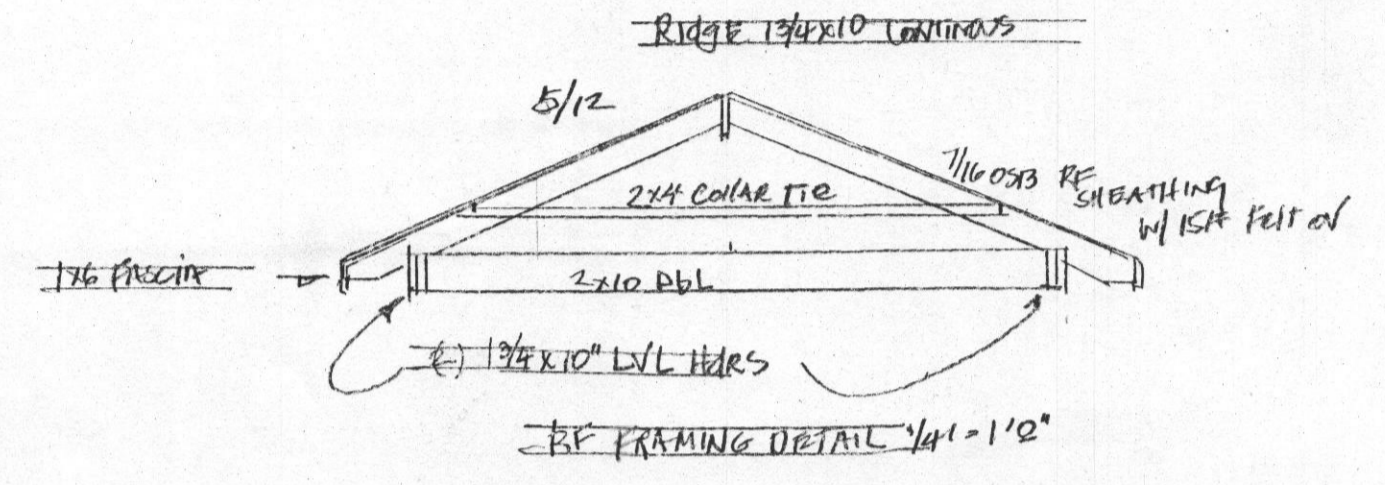 RIdgE 13/4x10 CONTINOUS
5/12
7/16 OSB RF
SHEATHING
W/ 15# Felt ov
2x4 COllAR TIE
1x6 FASCIA
2x10 DbL
1 3/4 x 10" LVL HdRS
RF FRAMING DETAIL 1/4" = 1'0"